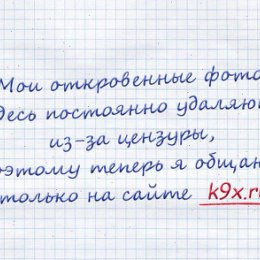 Мои откровенные фото
здесь постоянно удаляют
из-за цензуры,
поэтому теперь я общаюсь
только на сайте k9x.ru